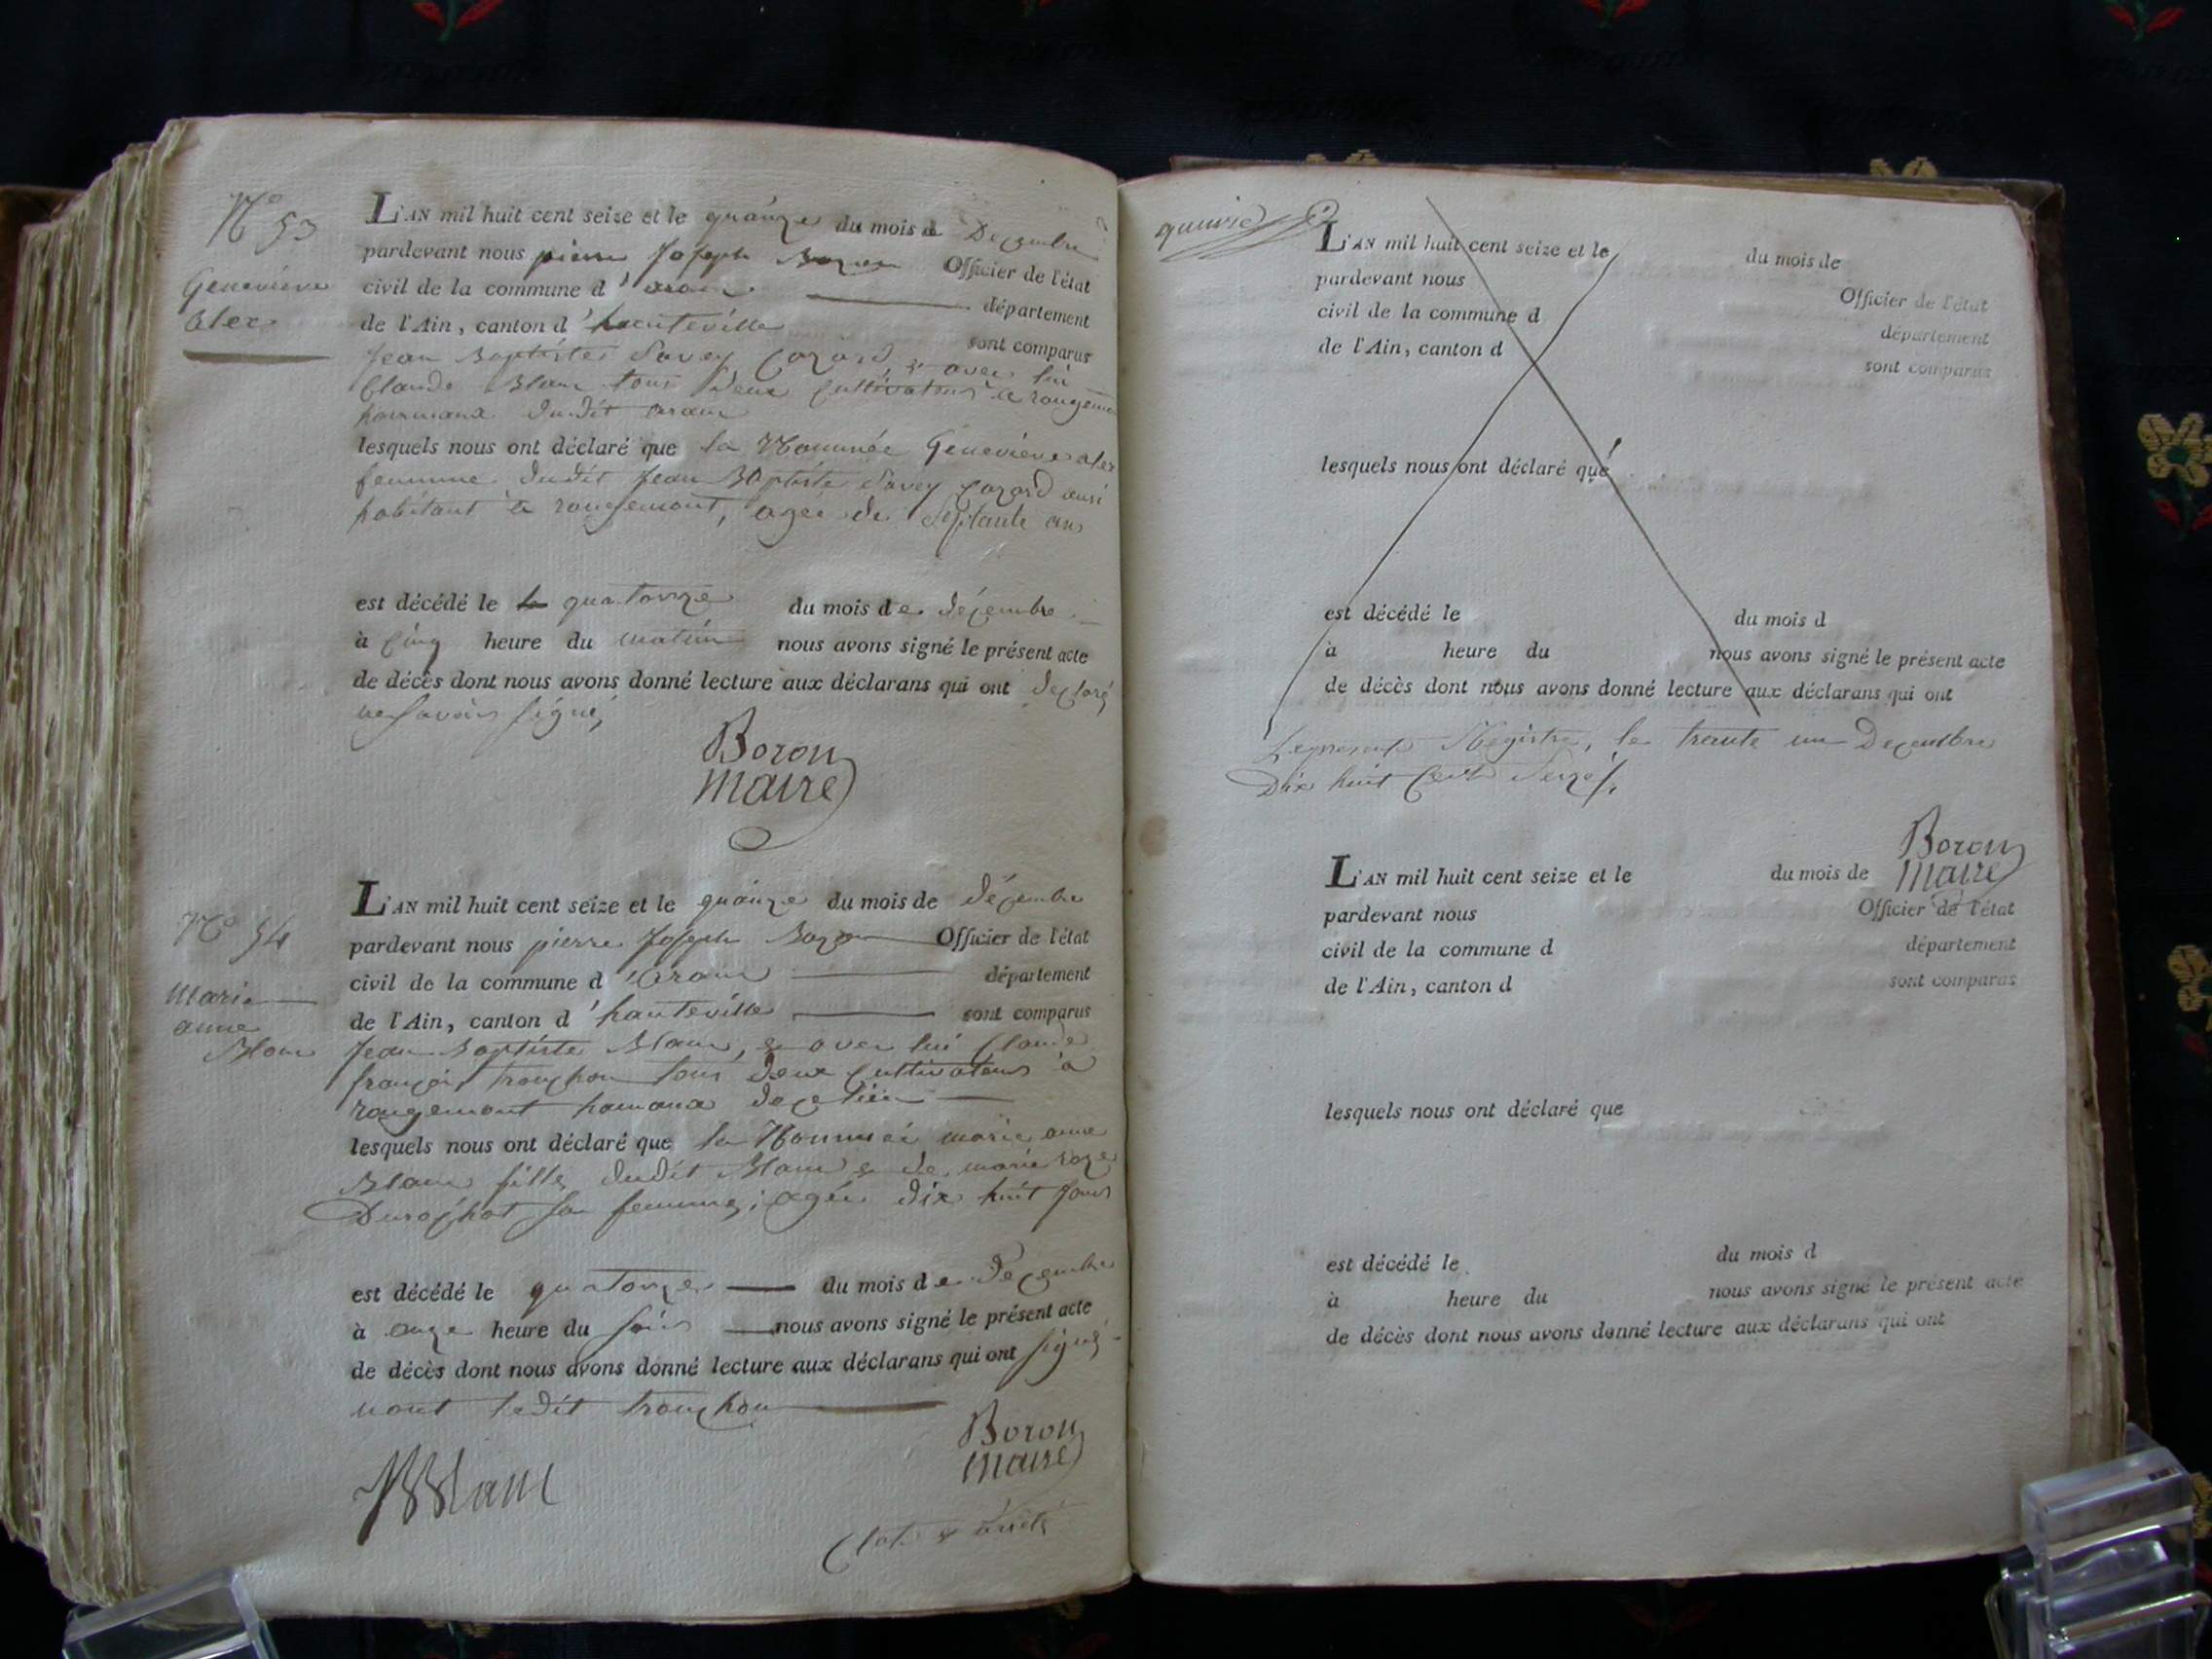 N.º 53
Geneviève
alex
L'AN mil huit cent seize et le quinze du mois de Decembre
pardevant nous pierre Joseph Bozon Officier de l'état
civil de la commune d'aran département
de l'Ain, canton d'hauteville sont comparus
Jean Baptiste Savey Cazard, & avec lui
Claude Blanc tous deux Cultivateurs a rougemont
hammaux dudit aran
lesquels nous ont déclaré que la Nommée Geneviève alex
femme dudit Jean Baptiste Savey Cazard aussi
habitant a rougemont, agee de Septante ans
est décédé le quatorze du mois de décembre
à cinq heure du matin nous avons signé le présent acte
de décès dont nous avons donné lecture aux déclarans qui ont declaré
ne Savoir Signé,
Bozon
maire
N.º 54
Marie
anne
Blanc
L'AN mil huit cent seize et le quinze du mois de décembre
pardevant nous pierre Joseph Bozon Officier de l'état
civil de la commune d'aran département
de l'Ain, canton d'hauteville sont comparus
Jean Baptiste Blanc, & avec lui Claude
françois tronchon tous deux Cultivateurs à
rougemont hamaux
lesquels nous ont déclaré que la Nommée marie anne
Blanc fille dudit Blanc & de marie roze
Durochat sa femme, agée dix huit Jours
est décédé le quatorze du mois de Decembre
à onze heure du soir nous avons signé le présent acte
de décès dont nous avons donné lecture aux déclarans qui ont signé
nont ledit tronchon
JBBlanc
Bozon
maire
Clot & arrêté
L'AN mil huit cent seize et le du mois de
pardevant nous Officier de l'état
civil de la commune d département
de l'Ain, canton d sont comparus
lesquels nous ont déclaré que
est décédé le du mois d
à heure du nous avons signé le présent acte
de décès dont nous avons donné lecture aux déclarans qui ont
Le present Registre, le trente un Decembre
Dix huit Cent Seize.
Bozon
maire
L'AN mil huit cent seize et le du mois de
pardevant nous Officier de l'état
civil de la commune d département
de l'Ain, canton d sont comparus
lesquels nous ont déclaré que
est décédé le du mois d
à heure du nous avons signé le présent acte
de décès dont nous avons donné lecture aux déclarans qui ont